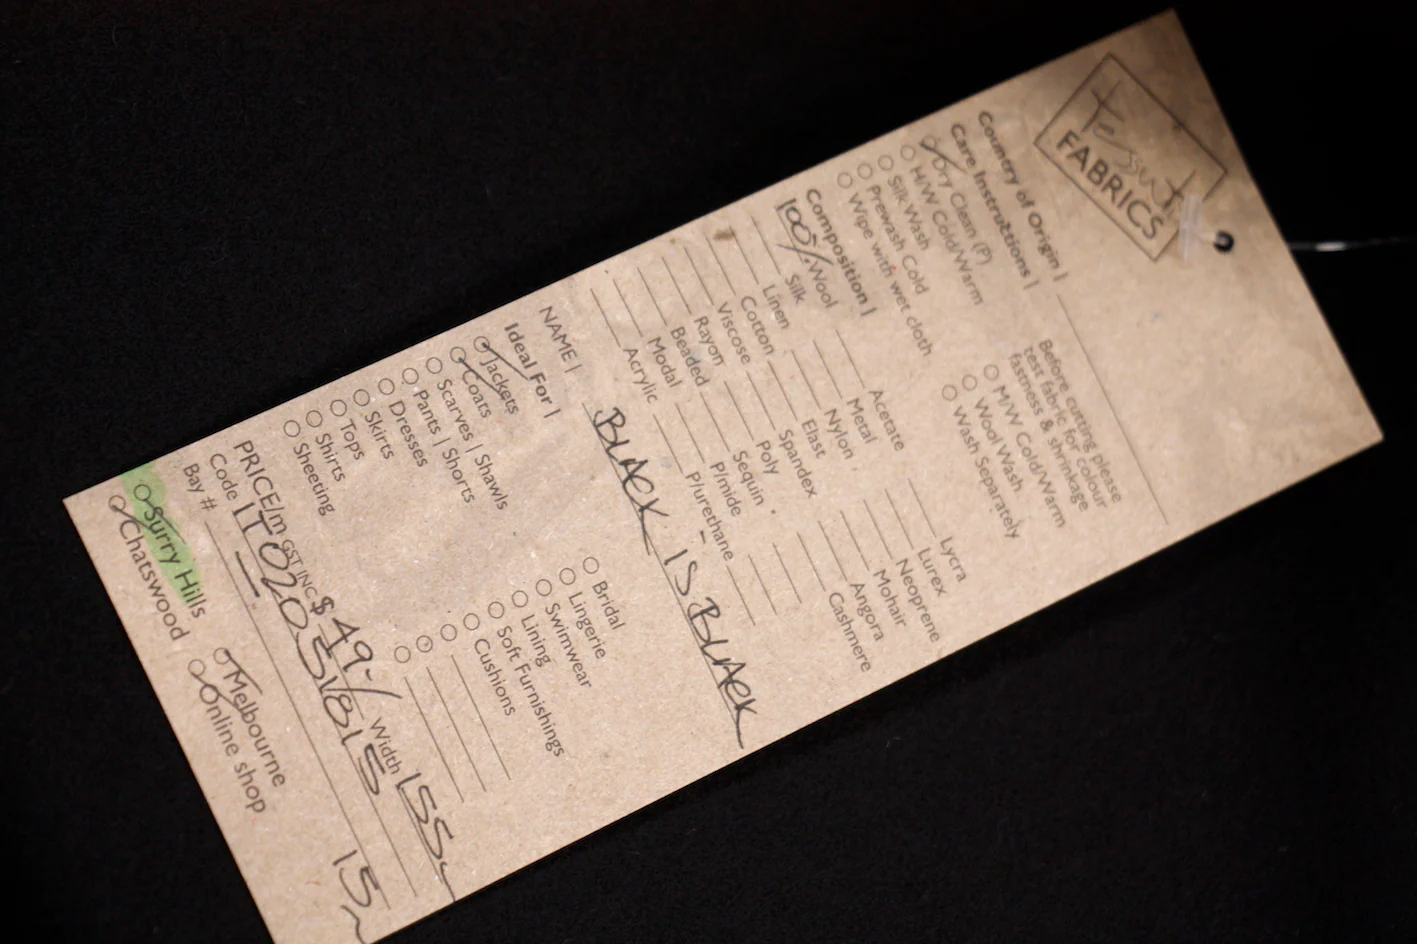 Tessuti
FABRICS
Country of Origin |
Care Instructions |
Dry Clean (P)
H/W Cold/Warm
Silk Wash
Prewash Cold
Wipe with wet cloth
Before cutting please
test fabric for colour
fastness & shrinkage
M/W Cold/Warm
Wool Wash
Wash Separately
Composition |
100% Wool Acetate Lycra
Silk Metal Lurex
Linen Nylon Neoprene
Cotton Elast Mohair
Viscose Spandex Angora
Rayon Poly Cashmere
Beaded Sequin
Modal P/mide
Acrylic P/urethane
NAME | BLACK IS BLACK
Ideal For |
Jackets Bridal
Coats Lingerie
Scarves | Shawls Swimwear
Pants | Shorts Lining
Dresses Soft Furnishings
Skirts Cushions
Tops
Shirts
Sheeting
PRICE/m GST INC $ 49.- Width 155
Code
Bay # 15
Surry Hills Melbourne
Chatswood Online shop